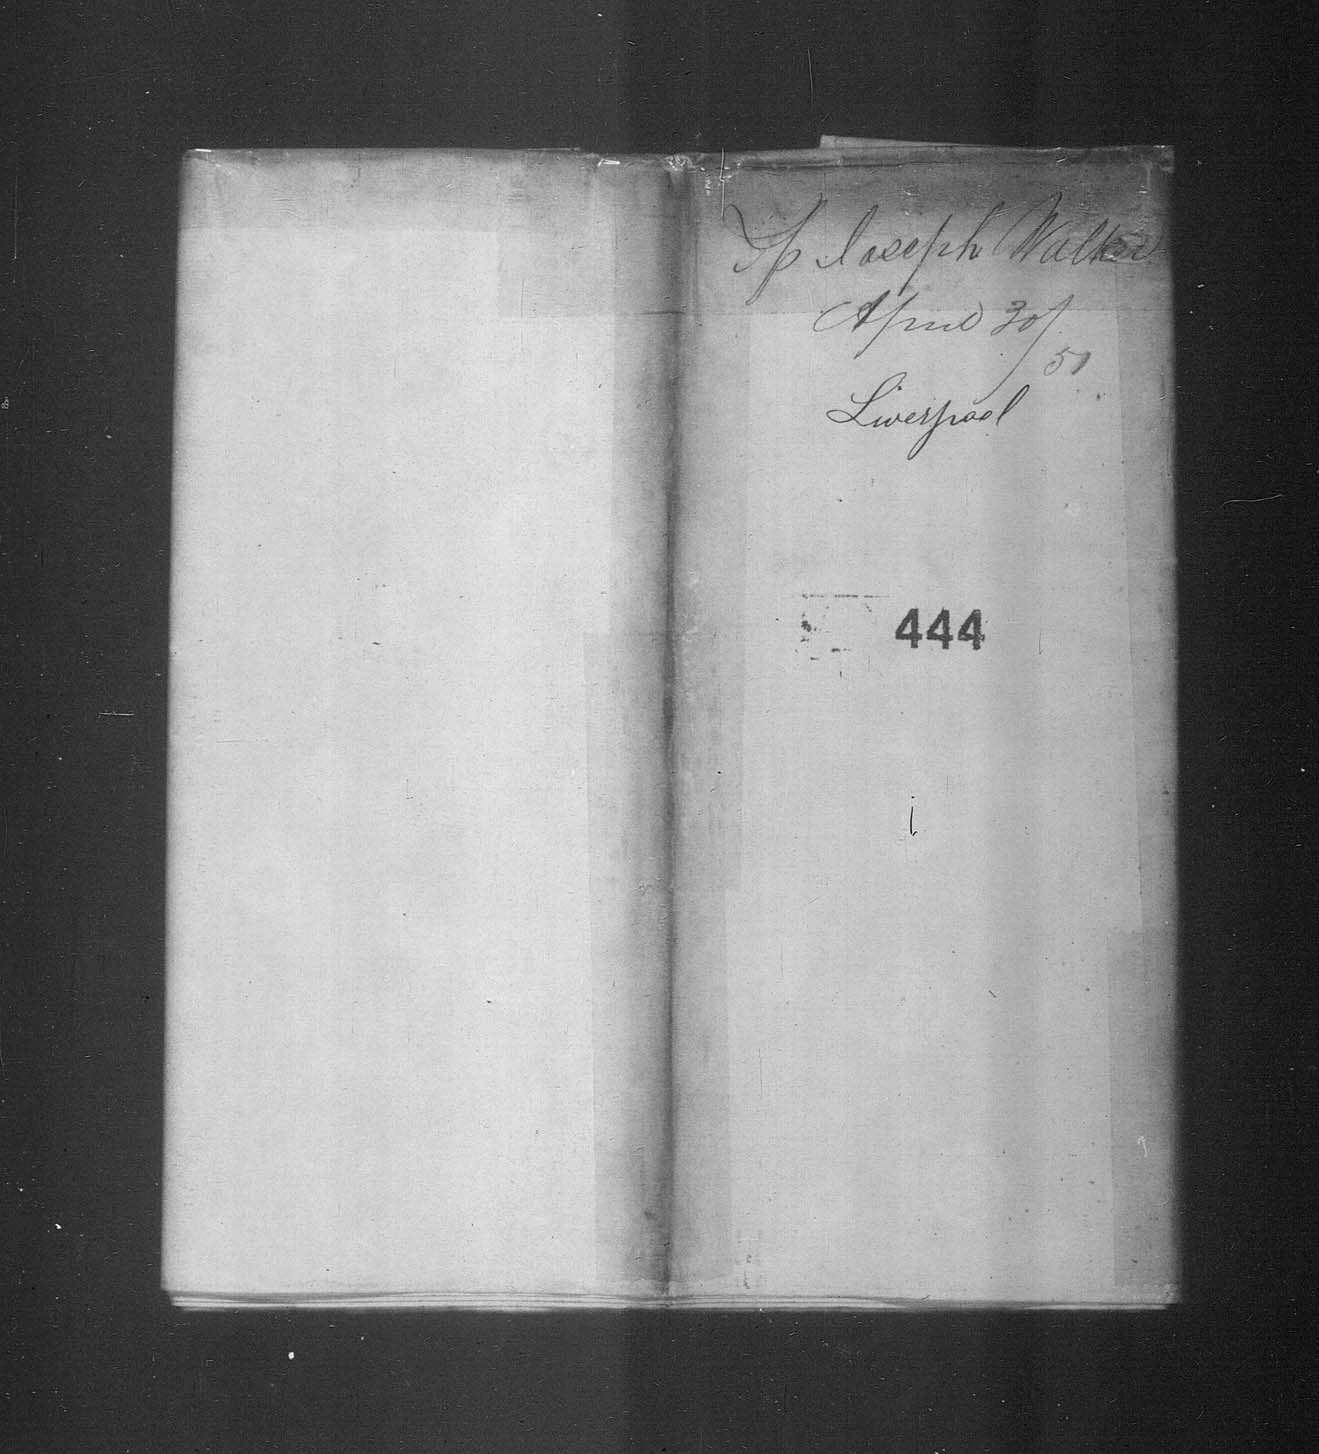 Sp Joseph Walker
April 30/
51
Liverpool
444